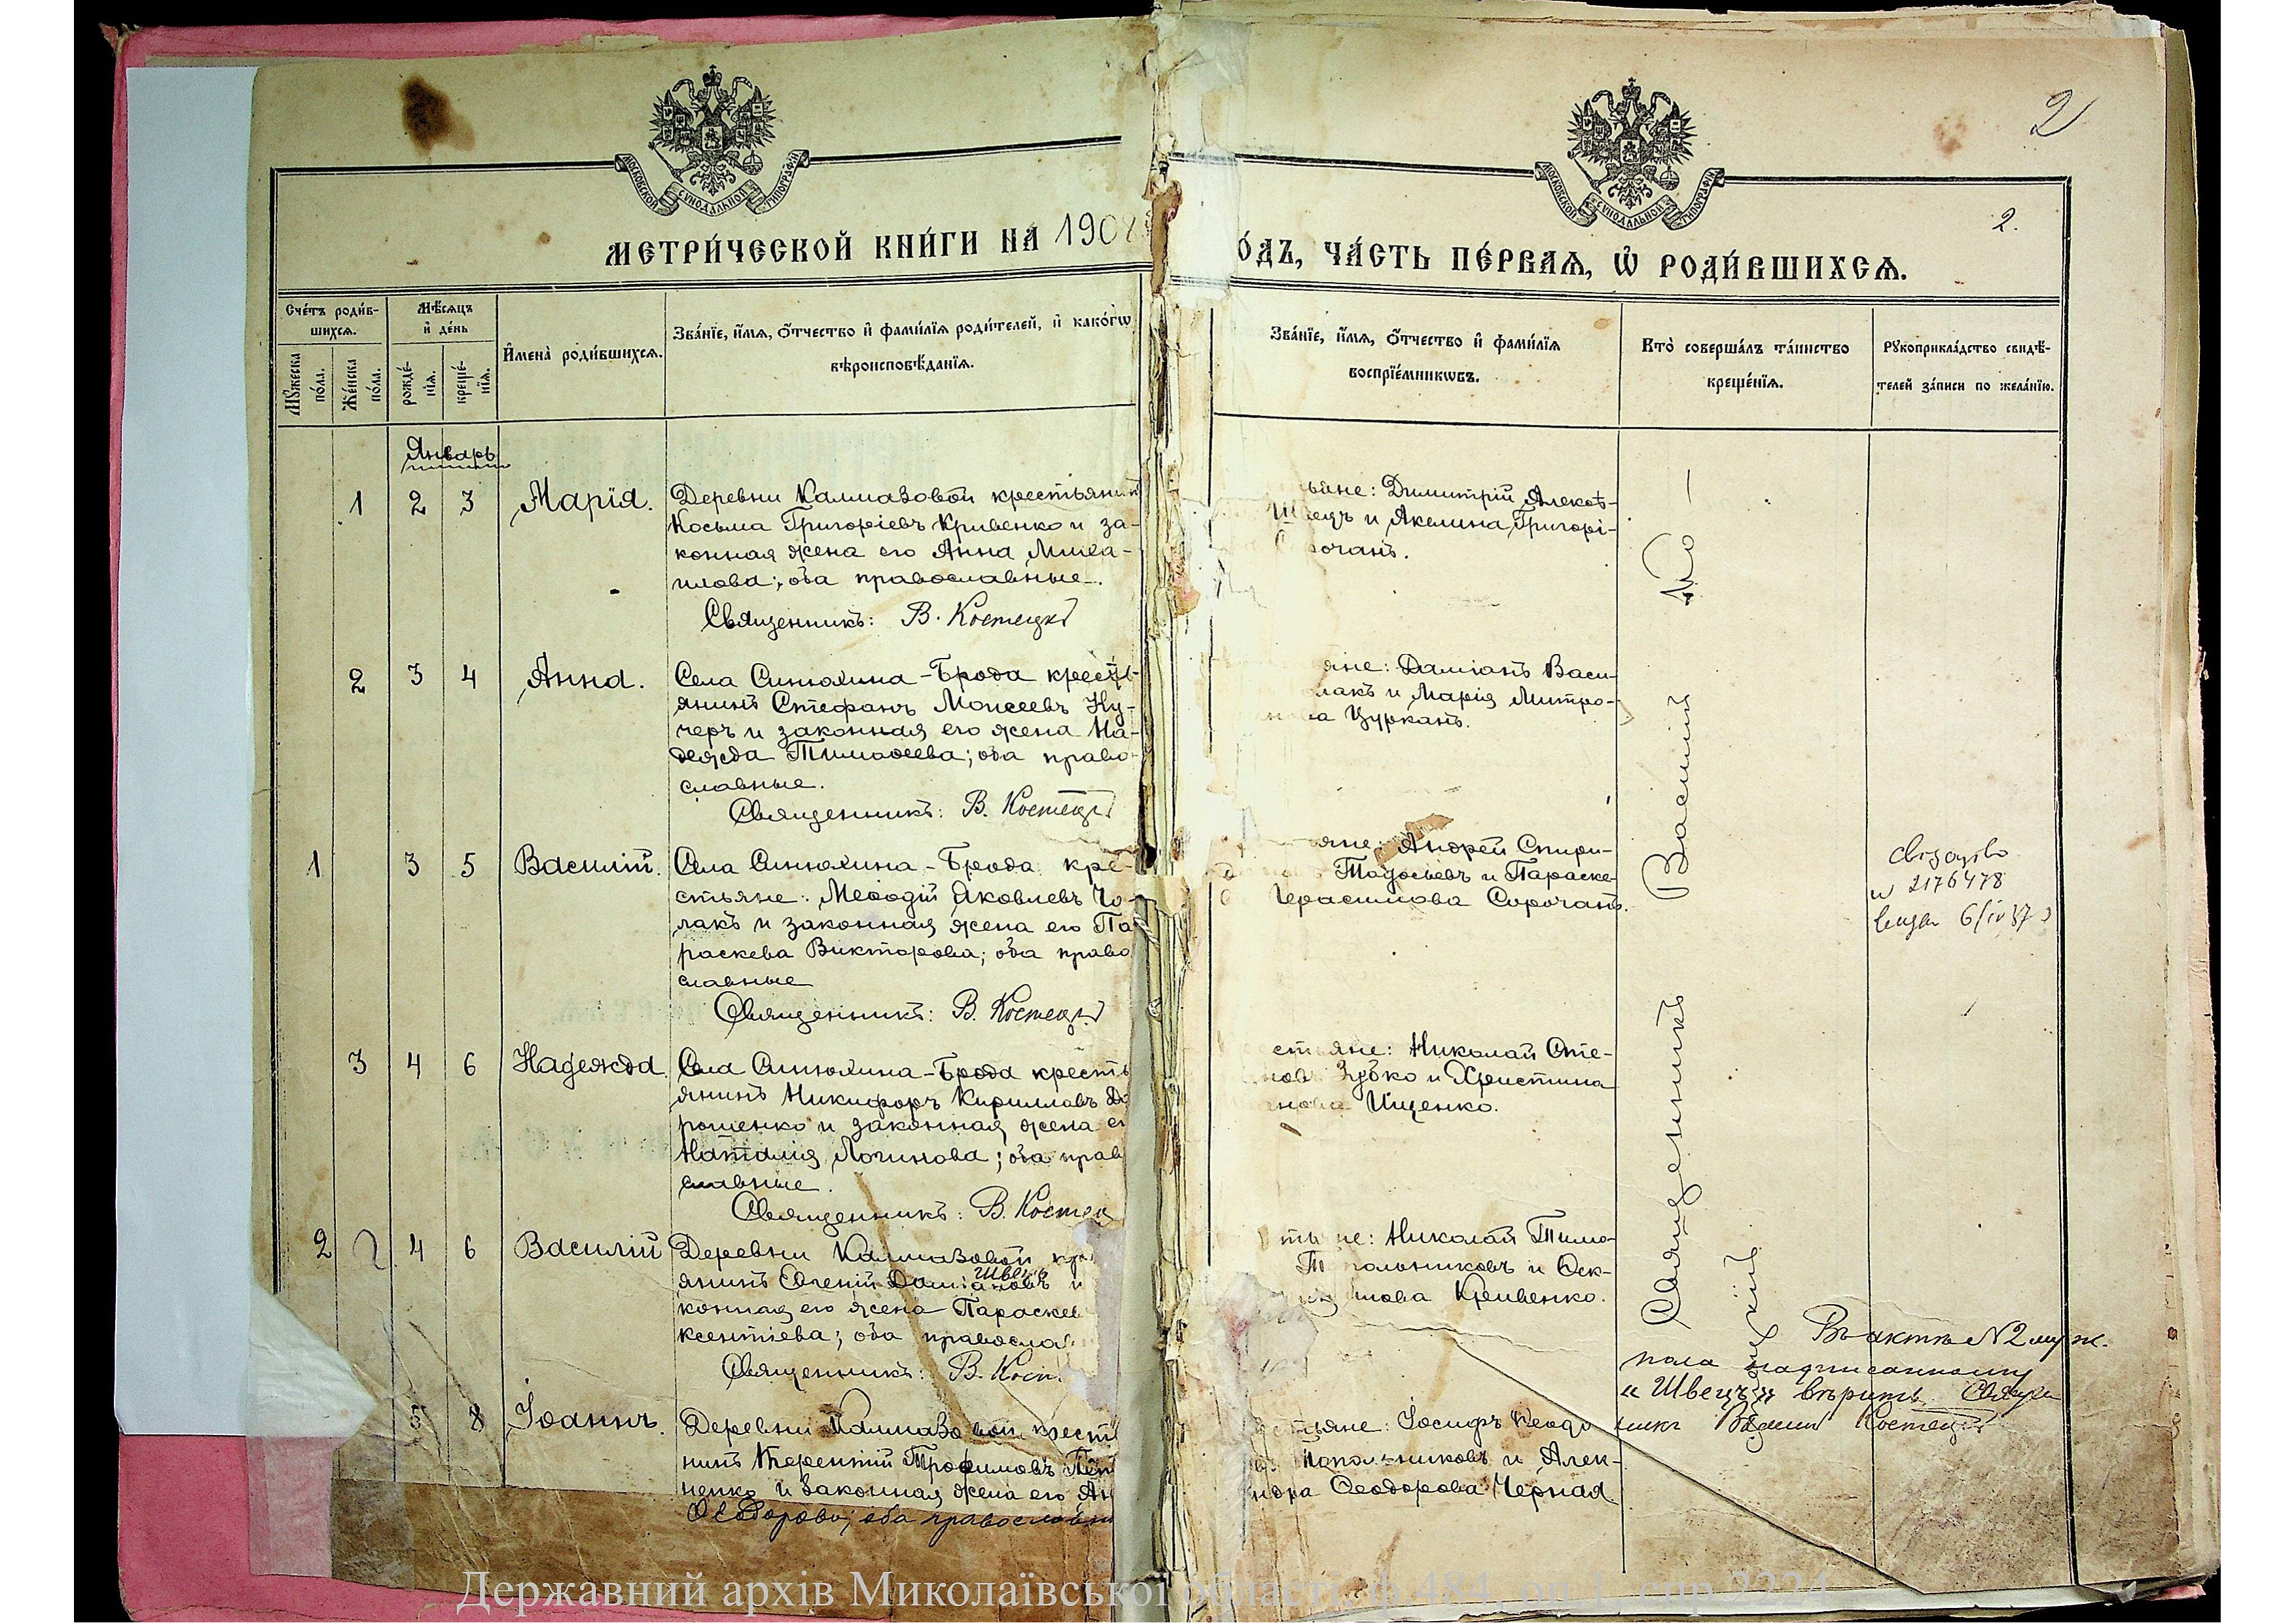 2
2.
МОСКОВСКОЙ СѴНОДАЛЬНОЙ ТИПОГРАФІИ
МОСКОВСКОЙ СѴНОДАЛЬНОЙ ТИПОГРАФІИ
МЕТРИ́ЧЕСКОЙ КНИ́ГИ НА̀ 190
О́ДЪ, ЧА́СТЬ ПЕ́РВАѦ, Ѡ҆ РОДИ́ВШИХСѦ.
Сче́тъ роди́в-
шихсѧ.
Мꙋ́жеска
по́ла.
Же́нска
по́ла.
Мѣ́сѧцъ
и҆ де́нь
рожде́-
нїѧ.
креще́-
нїѧ.
И҆мена̀ роди́вшихсѧ.
Зва́нїе, и҆́мѧ, ѻ҆́тчество и҆ фами́лїѧ роди́телей, и҆ како́гѡ
вѣроисповѣ́данїѧ.
Зва́нїе, и҆́мѧ, ѻ҆́тчество и҆ фами́лїѧ
воспрїе́мникѡвъ.
Кто̀ соверша́лъ та́инство
креще́нїѧ.
Рꙋкоприкла́дство свидѣ́-
телей за́писи по жела́нїю.
Январь
1 2 3 Марія.
Деревни Калмазовой крестьянин
Косьма Григоріевъ Кривенко и за-
конная жена его Анна Миха-
илова; оба православные.
Священникъ: В. Костецкі
ьяне: Димитрій Алексѣ-
Швецъ и Акелина Григорі-
рочанъ.
2 3 4 Анна.
Села Синюхина-Брода кресть-
янинъ Стефанъ Моисеевъ Ку-
черъ и законная его жена На-
дежда Тимоѳеева; оба право-
славные.
Священникъ: В. Костецкі
яне: Даміанъ Васи-
лакъ и Марія Митро-
ва Цурканъ.
1 3 5 Василій.
Села Синюхина-Брода кре-
стьяне: Меѳодій Яковлевъ Чо-
лакъ и законная жена его Па
раскева Викторова; оба право
славные
Священникъ: В. Костецкі
яне: Андрей Спири-
Тодосьевъ и Параске-
Герасимова Сорочанъ.
2176478
6/IV 37
3 4 6 Надежда.
Села Синюхина-Брода кресть
янинъ Никифоръ Кирилловъ До
рошенко и законная жена ег
Наталія Логинова; оба прав
славные.
Священникъ: В. Костец
стьяне: Николай Сте-
новъ Зубко и Христина
нова Ищенко.
2 4 6 Василій
Деревни Калмазовой кре
Швець
янинъ Евгеній Даміановъ и
конная его жена Параскев
ксентіева; оба правосла
Священникъ: В. Кост
не: Николай Тимо-
польниковъ и
мова Кривенко.
Въ актѣ N2 муж.
пола надписанному
„Швецъ" вѣрить. Священ
никъ Василій Костецкій
5 8 Іоаннъ.
Деревни Калмазовой кресть
нинъ Терентій Трофимовъ
ненко и законная жена его Ан
Ѳеодорова; оба православн
стьяне: Іосифъ Ѳеодо
Топольниковъ и Алек-
ндра Ѳеодорова Черная.
Священникъ Василій Ко-
скій
Державний архів Миколаївської області, ф.484, оп.1, спр.2224